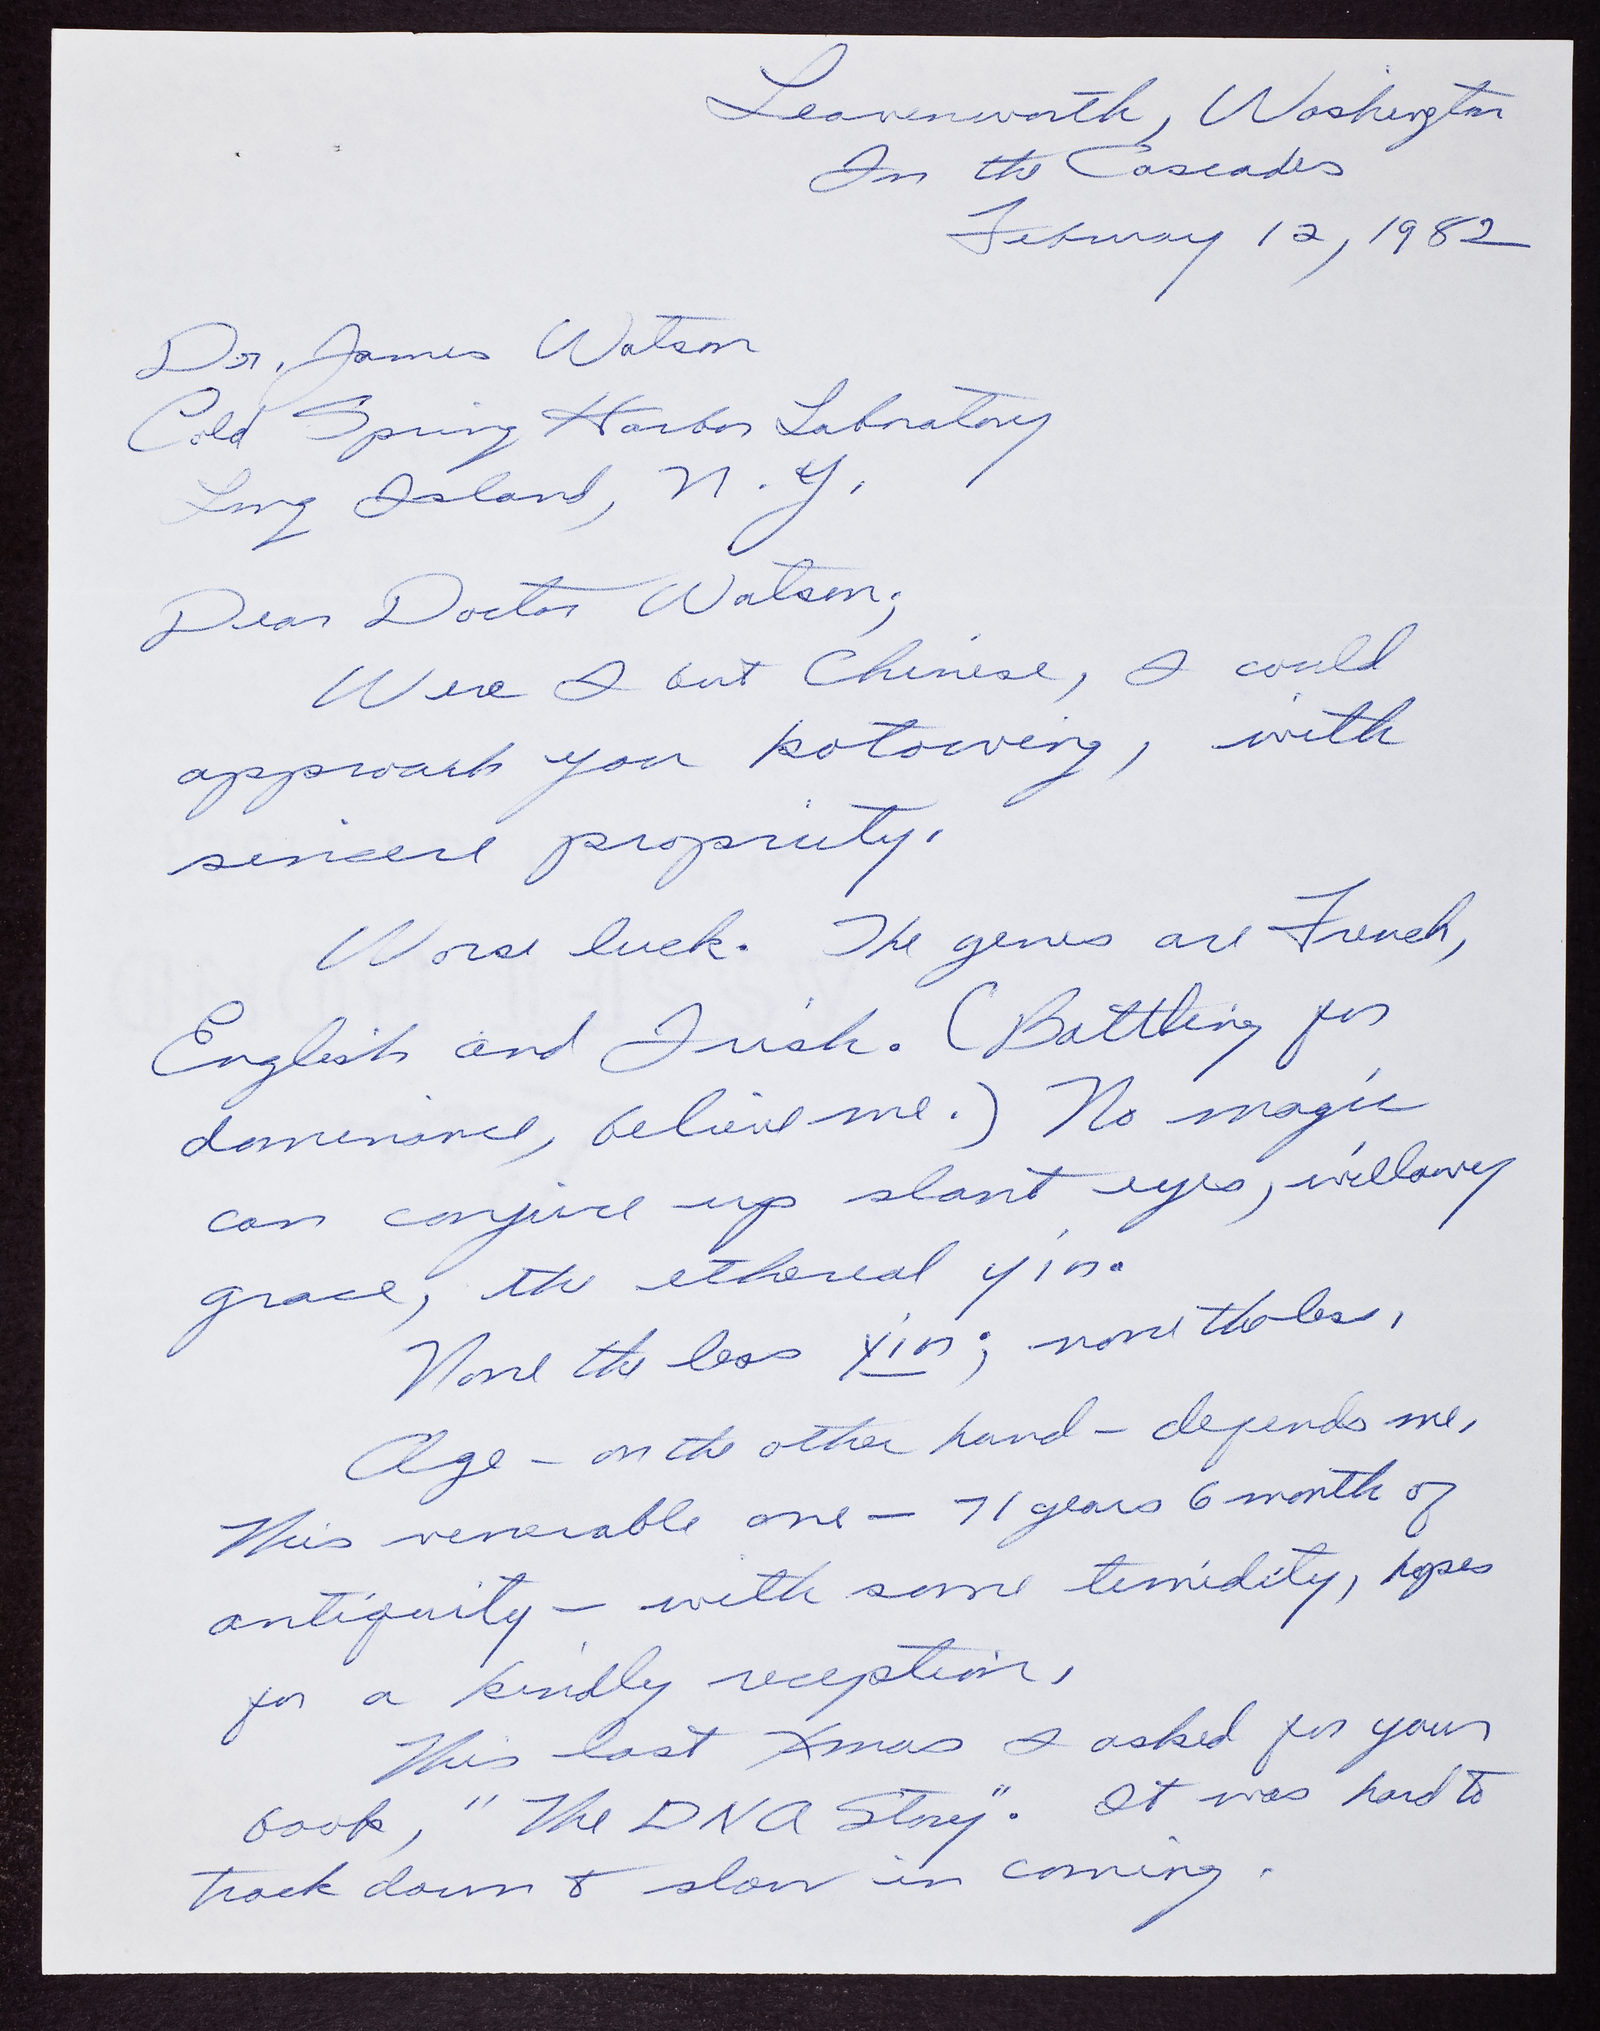 Leavenworth, Washington
In the Cascades
February 12, 1982
Dr. James Watson
Cold Spring Harbor Laboratory
Long Island, N.Y.
Dear Doctor Watson;
Were I but Chinese, I could
approach you kotowing, with
sincere propriety.
Worse luck. The genes are French,
English and Irish. (Battling for
dominance, believe me.) No magic
can conjure up slant eyes, willowy
grace, the ethereal yin.
None the less yin; nonetheless.
Age - on the other hand - defends me.
This venerable one - 71 years 6 month of
antiquity - with some timidity, hopes
for a kindly reception.
This last Xmas I asked for your
book, "The DNA Story". It was hard to
track down & slow in coming.